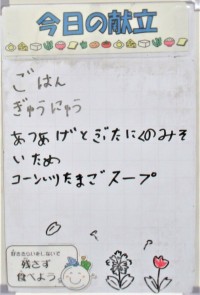 今日の献立
ごはん
ぎゅうにゅう
あつあげとぶたにくのみそ
いため
コーンいりたまごスープ
好ききらいをしないで
残さず
食べよう